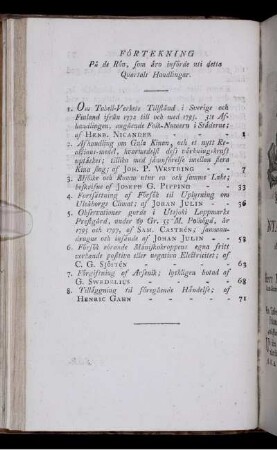 FÖRTEKNING
På de Rön, som äro införde uti detta
Quartals Handlingar.
1. Om Tabell-Verkets Tillstånd i Sverige och
Finland ifrån 1772 till och med 1795. 3:e Af-
handlingen, angående Folk-Numern i Städerne;
af HENR. NICANDER - - - 1
2. Afhandling om Gula Kinan, och et nytt Re-
actions-medel, utvisande dess värkningskraft
samt jämnförelse imellan flera
Kina slag; af JOH. P. WESTRING - - 7
3. Blåsor och Ruem utur en och samma Luks;
beskrifne af JOSEPH G. PIPPING - - 33
4. Fortsättning af Försök til Uplysning om
Uleåborgs Climat; af JOHAN JULIN - 36
5. Observationer gorde i Utsjoki Lappmarks
Prestgård, under 69 Gr. 53 M. Polhögd, år
1795 och 1797, af SAM. CASTRÉN; samman-
dragne och insände af JOHAN JULIN - 58
6. Försök rörande Människokroppens egna fritt
verkande positiva eller negativa Electricitet; af
C. G. SJÖSTÉN - - - 63
7. Förgiftning af Arsenik; lyckligen botad af
G. SWEDELIUS - - - 68
8. Tilläggning til föregående Händelse; af
HENRIC GAHN - - - 71